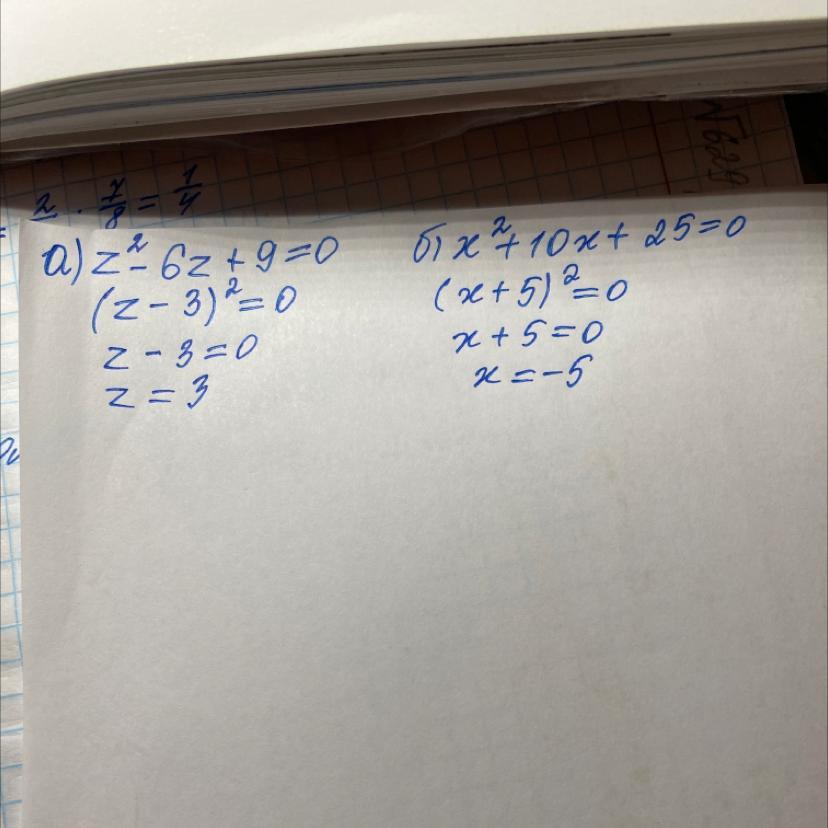 №629
2 · 7/8 = 1/4
а) z² - 6z + 9 = 0
(z - 3)² = 0
z - 3 = 0
z = 3
б) x² + 10x + 25 = 0
(x + 5)² = 0
x + 5 = 0
x = -5